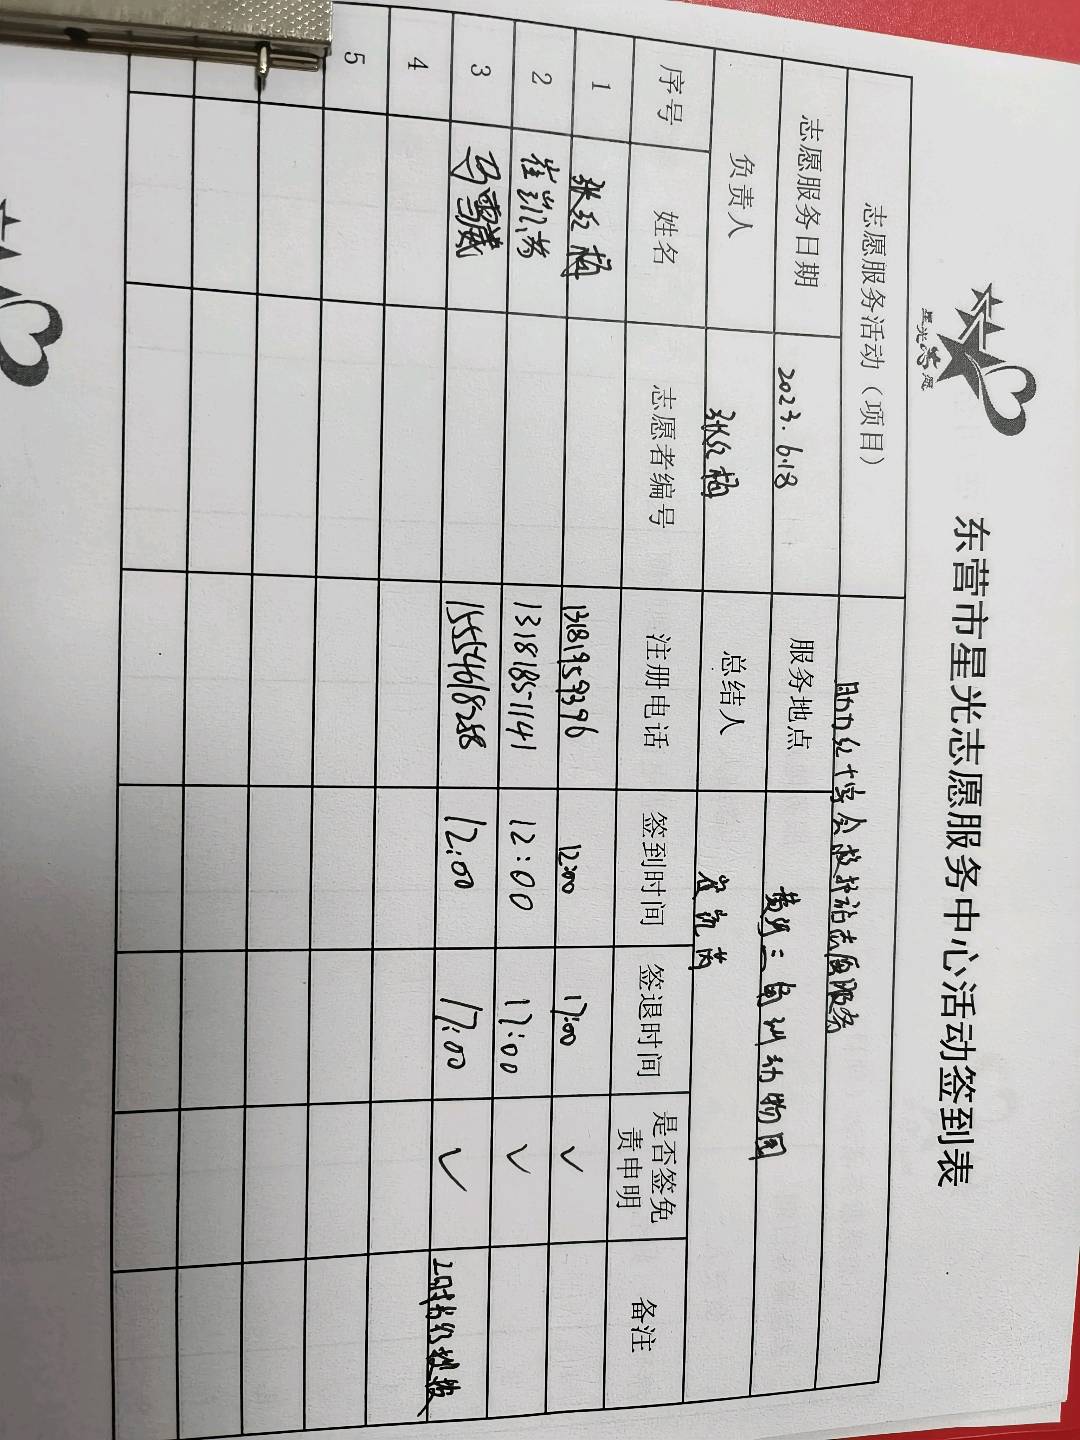 星光志愿
东营市星光志愿服务中心活动签到表
志愿服务活动（项目） 助力红十字会救护站志愿服务
志愿服务日期 2023.6.18 服务地点 动物园
负责人 张红梅 总结人 崔凯芮
序号 姓名 志愿者编号 注册电话 签到时间 签退时间 是否签免责申明 备注
1 张红梅 13181959396 12:00 17:00 ✓
2 崔凯芮 13181851141 12:00 17:00 ✓
3 马雪葳 15554618258 12:00 17:00 ✓
4
5